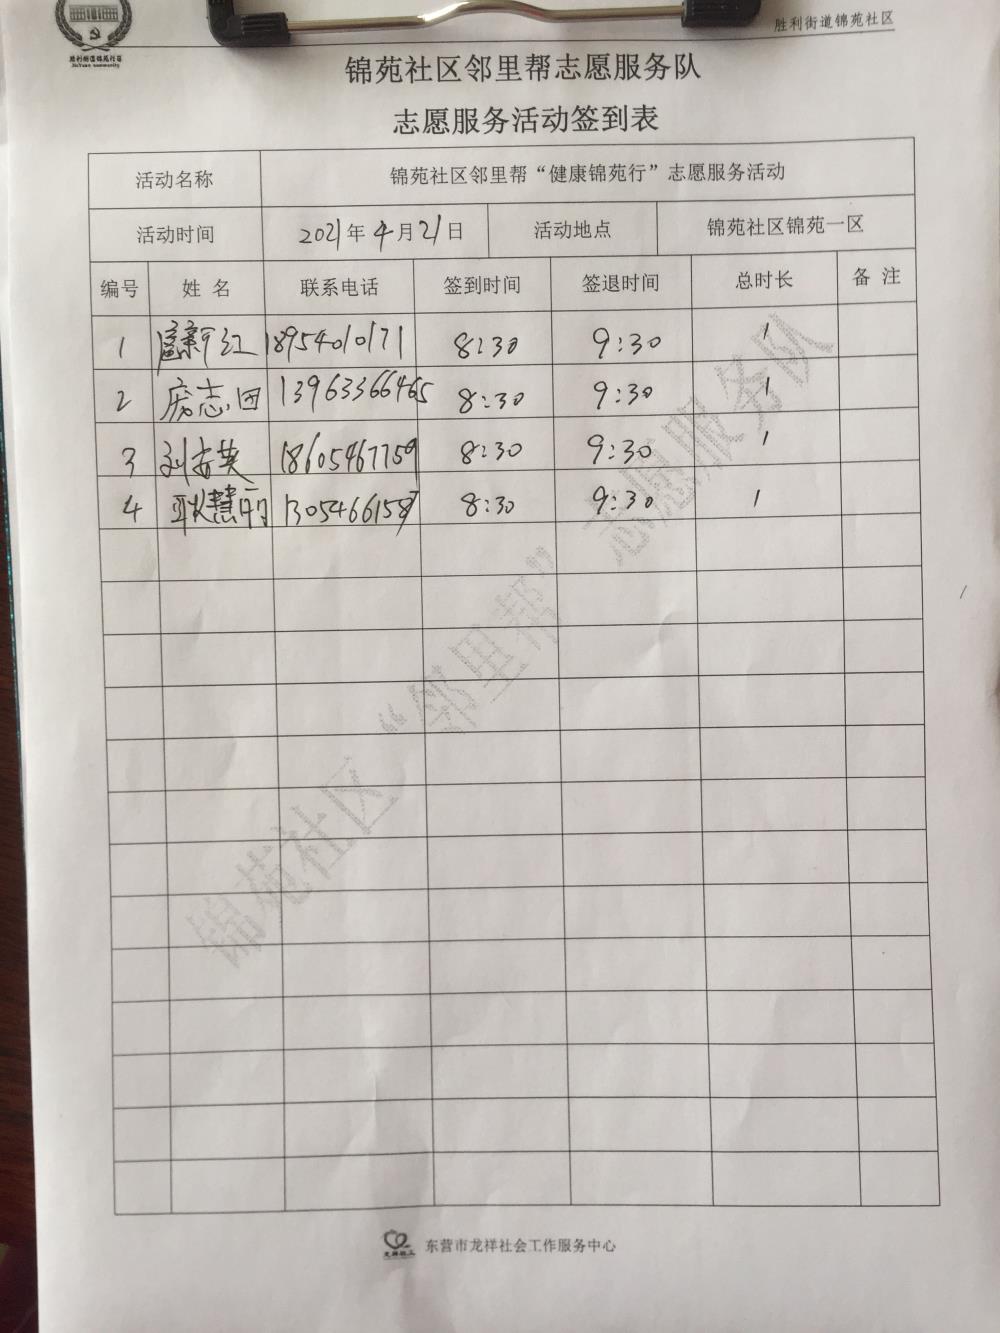 胜利街道锦苑社区
胜利街道锦苑社区
JinYuan community
锦苑社区邻里帮志愿服务队
志愿服务活动签到表
活动名称 锦苑社区邻里帮“健康锦苑行”志愿服务活动
活动时间 2021年4月21日 活动地点 锦苑社区锦苑一区
编号 姓 名 联系电话 签到时间 签退时间 总时长 备 注
1 18954010171 8:30 9:30 1
2 房志田 13963366465 8:30 9:30 1
3 刘安英 18605467759 8:30 9:30 1
4 耿慧丽 13054661587 8:30 9:30 1
锦苑社区“邻里帮”志愿服务队
东营市龙祥社会工作服务中心